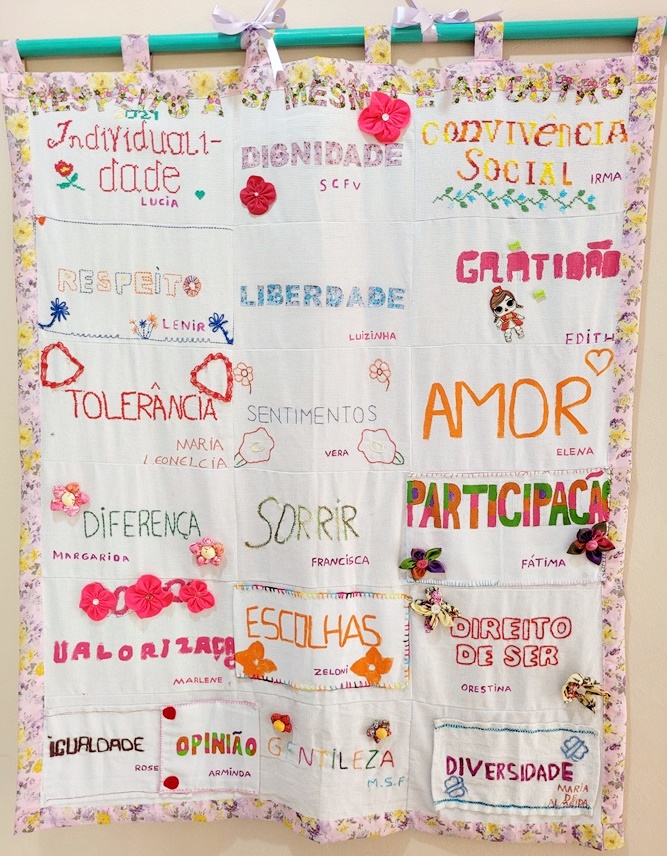 RESPEITO A SI MESMO E AO OUTRO
2024
Individuali-
dade
LUCIA
DIGNIDADE
SCFV
CONVIVÊNCIA
SOCIAL
IRMA
RESPEITO
LENIR
LIBERDADE
LUIZINHA
GRATIDÃO
EDITH
TOLERÂNCIA
MARIA
LEONELCIA
SENTIMENTOS
VERA
AMOR
ELENA
DIFERENÇA
MARGARIDA
SORRIR
FRANCISCA
PARTICIPAÇÃO
FÁTIMA
VALORIZAÇÃ
MARLENE
ESCOLHAS
ZELONI
DIREITO
DE SER
ORESTINA
IGUALDADE
ROSE
OPINIÃO
ARMINDA
GENTILEZA
M.S.F
DIVERSIDADE
MARIA
DE
ALMEIDA